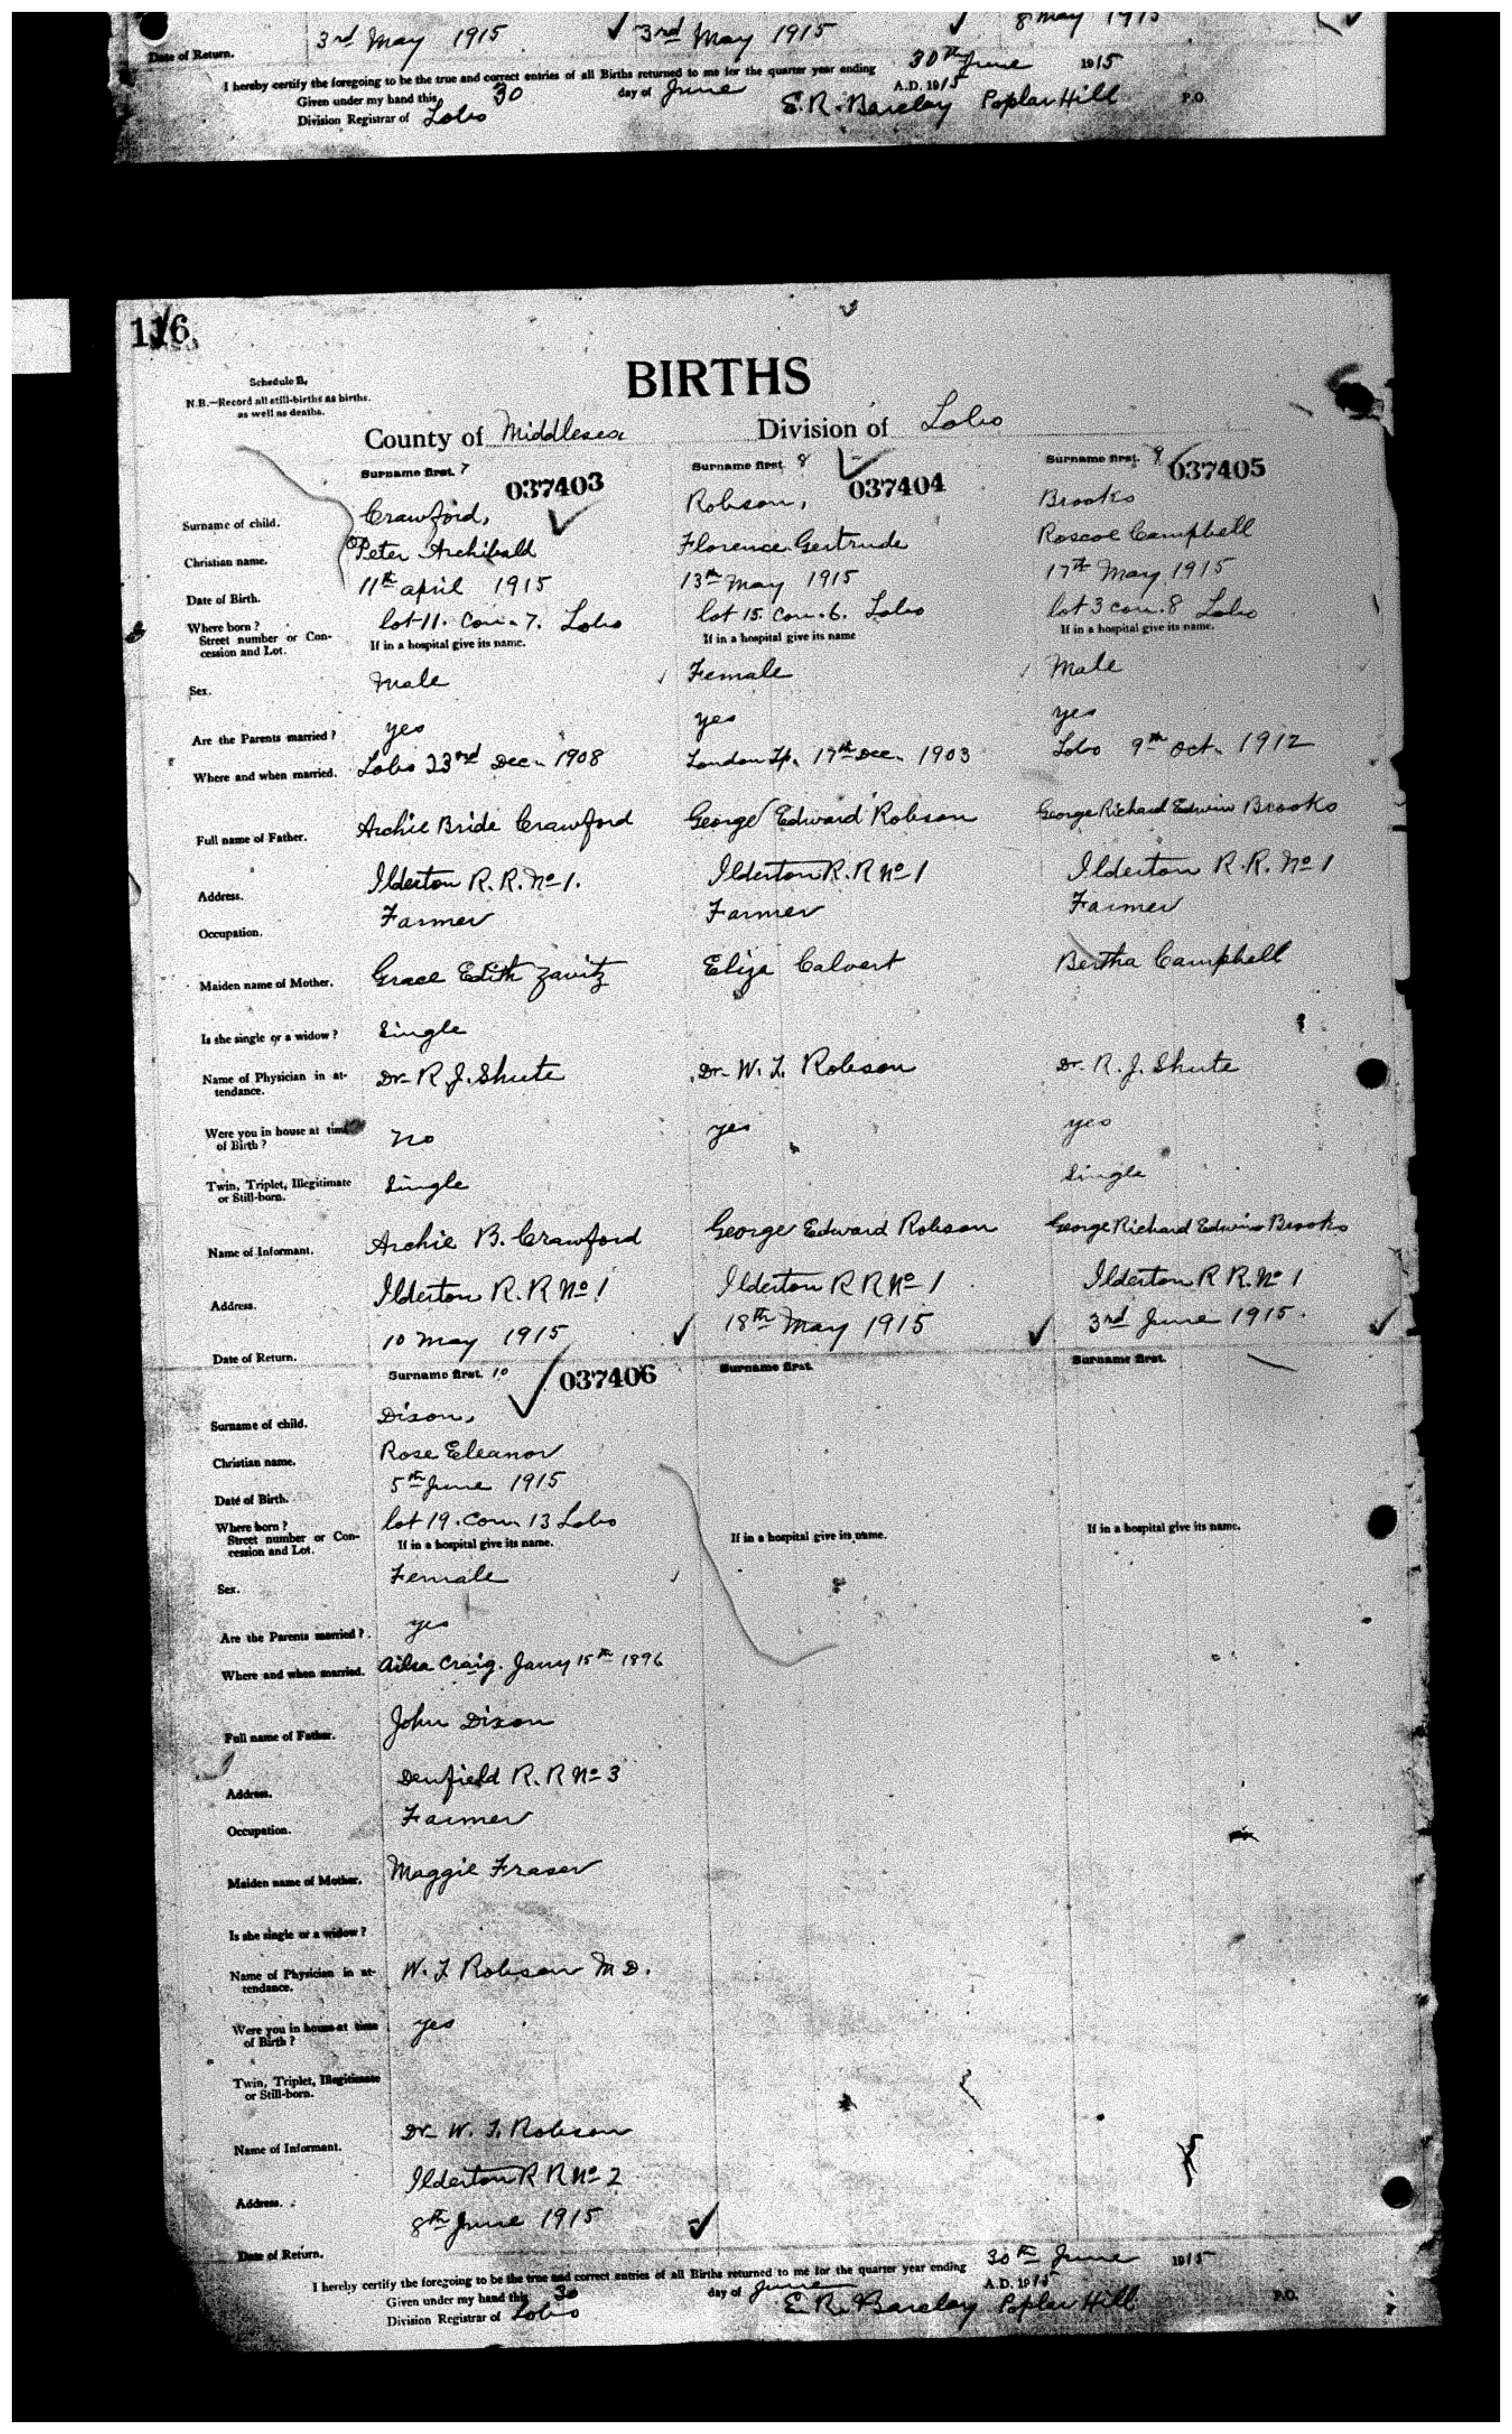 Date of Return. 3rd May 1915 3rd May 1915 8 May 1915
I hereby certify the foregoing to be the true and correct entries of all Births returned to me for the quarter year ending 30th June 1915
Given under my hand this 30 day of June A.D. 1915
Division Registrar of Lobo E. R. Barclay Poplar Hill P.O.
116
Schedule B.
N.B.—Record all still-births as births.
as well as deaths.
BIRTHS
County of Middlesex Division of Lobo
Surname first. 7 037403 Surname first. 8 037404 Surname first. 9 037405
Surname of child. Crawford, Robson, Brooks
Christian name. Peter Archibald Florence Gertrude Roscoe Campbell
Date of Birth. 11th april 1915 13th May 1915 17th May 1915
Where born? lot 11. Con. 7. Lobo lot 15. Con. 6. Lobo lot 3 con. 8 Lobo
Street number or Con-
cession and Lot. If in a hospital give its name. If in a hospital give its name If in a hospital give its name.
Sex. Male Female Male
Are the Parents married? yes yes yes
Where and when married. Lobo 23rd Dec. 1908 London Tp. 17th Dec. 1903 Lobo 9th Oct. 1912
Full name of Father. Archie Bride Crawford George Edward Robson George Richard Edwin Brooks
Address. Ilderton R. R. No 1. Ilderton R. R No 1 Ilderton R. R. No 1
Occupation. Farmer Farmer Farmer
Maiden name of Mother. Grace Edith Zavitz Eliza Calvert Bertha Campbell
Is she single or a widow? Single
Name of Physician in at-
tendance. Dr. R. J. Shute Dr. W. T. Robson Dr. R. J. Shute
Were you in house at time
of Birth? no yes yes
Twin, Triplet, Illegitimate
or Still-born. Single Single
Name of Informant. Archie B. Crawford George Edward Robson George Richard Edwin Brooks
Address. Ilderton R. R No 1 Ilderton R R No 1 Ilderton R R. No 1
Date of Return. 10 May 1915 18th May 1915 3rd June 1915.
Surname first. 10 037406 Surname first. Surname first.
Surname of child. Dixon,
Christian name. Rose Eleanor
Date of Birth. 5th June 1915
Where born? lot 19. Con. 13 Lobo
Street number or Con-
cession and Lot. If in a hospital give its name. If in a hospital give its name. If in a hospital give its name.
Sex. Female
Are the Parents married? yes
Where and when married. Ailsa Craig. Jany 15th 1896
Full name of Father. John Dixon
Address. Denfield R. R No 3
Occupation. Farmer
Maiden name of Mother. Maggie Fraser
Is she single or a widow?
Name of Physician in at-
tendance. W. T Robson M D.
Were you in house at time
of Birth? yes
Twin, Triplet, Illegitimate
or Still-born.
Name of Informant. Dr. W. T. Robson
Address. Ilderton R R No 2
Date of Return. 8th June 1915
I hereby certify the foregoing to be the true and correct entries of all Births returned to me for the quarter year ending 30th June 1915
Given under my hand this 30 day of June A.D. 1915
Division Registrar of Lobo E. R. Barclay Poplar Hill P.O.